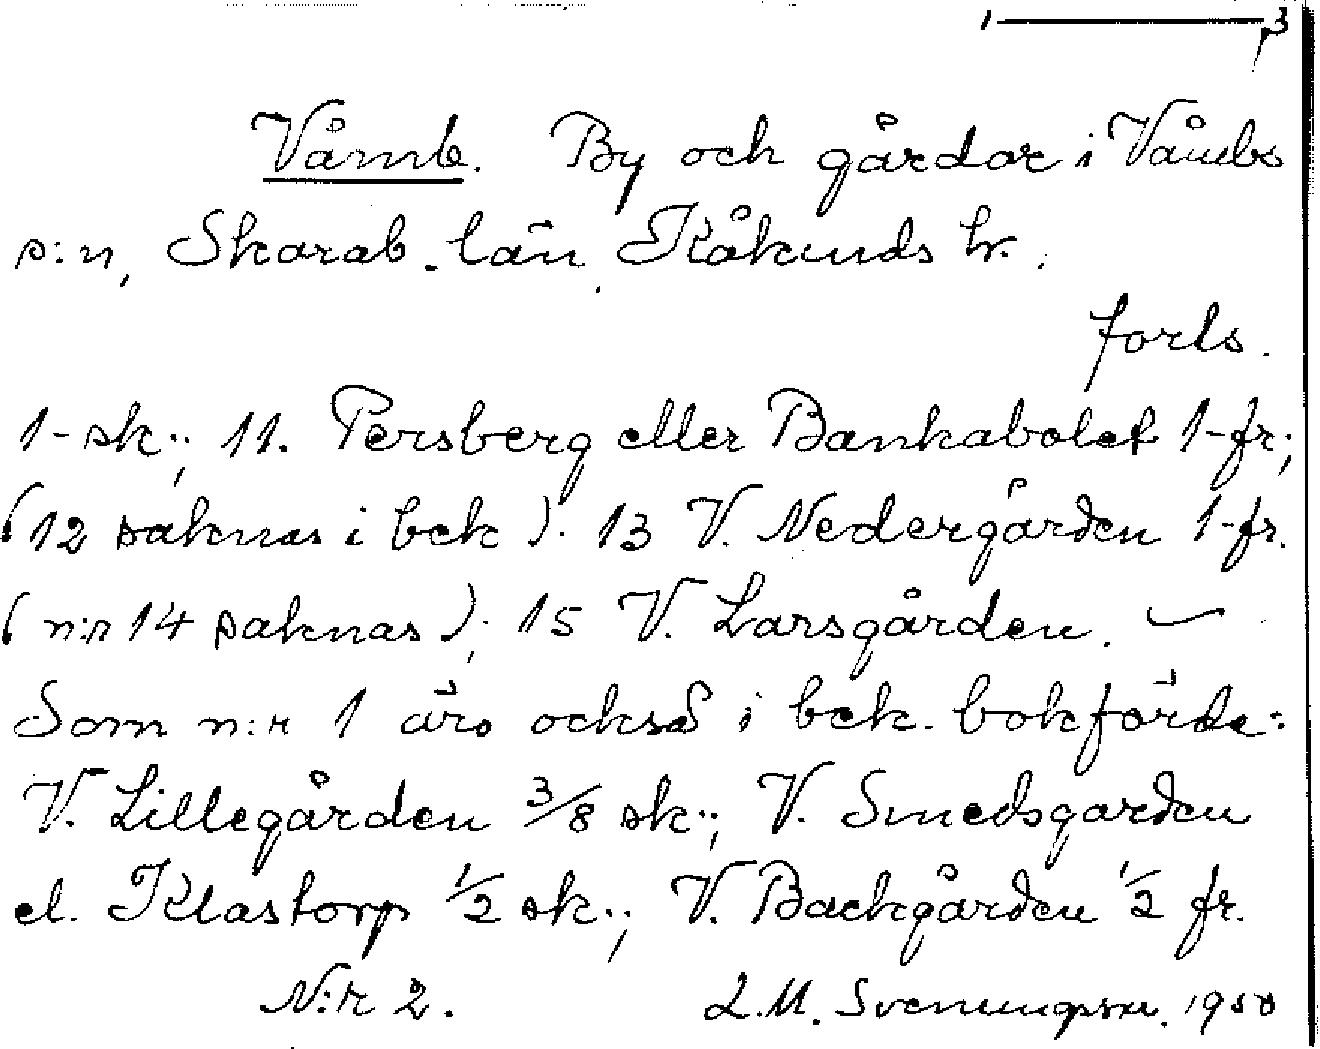 1 — 3
Våmb. By och gårdar i Våmbs
s:n, Skarab. län, Kåkinds hr.
forts.
1-sk.; 11. Persberg eller Bankabolet 1-fr;
(12 saknas i bek). 13 V. Nedergården 1-fr.
(n:r 14 saknas); 15 V. Larsgården. —
Som n:r 1 äro också i bek. bokförda:
V. Lillegården 3/8 sk.; V. Smedsgarden
el. Klastorp 1/2 sk.; V. Backgården 1/2 fr.
N:r 2. L.M. Svenungsson. 1950